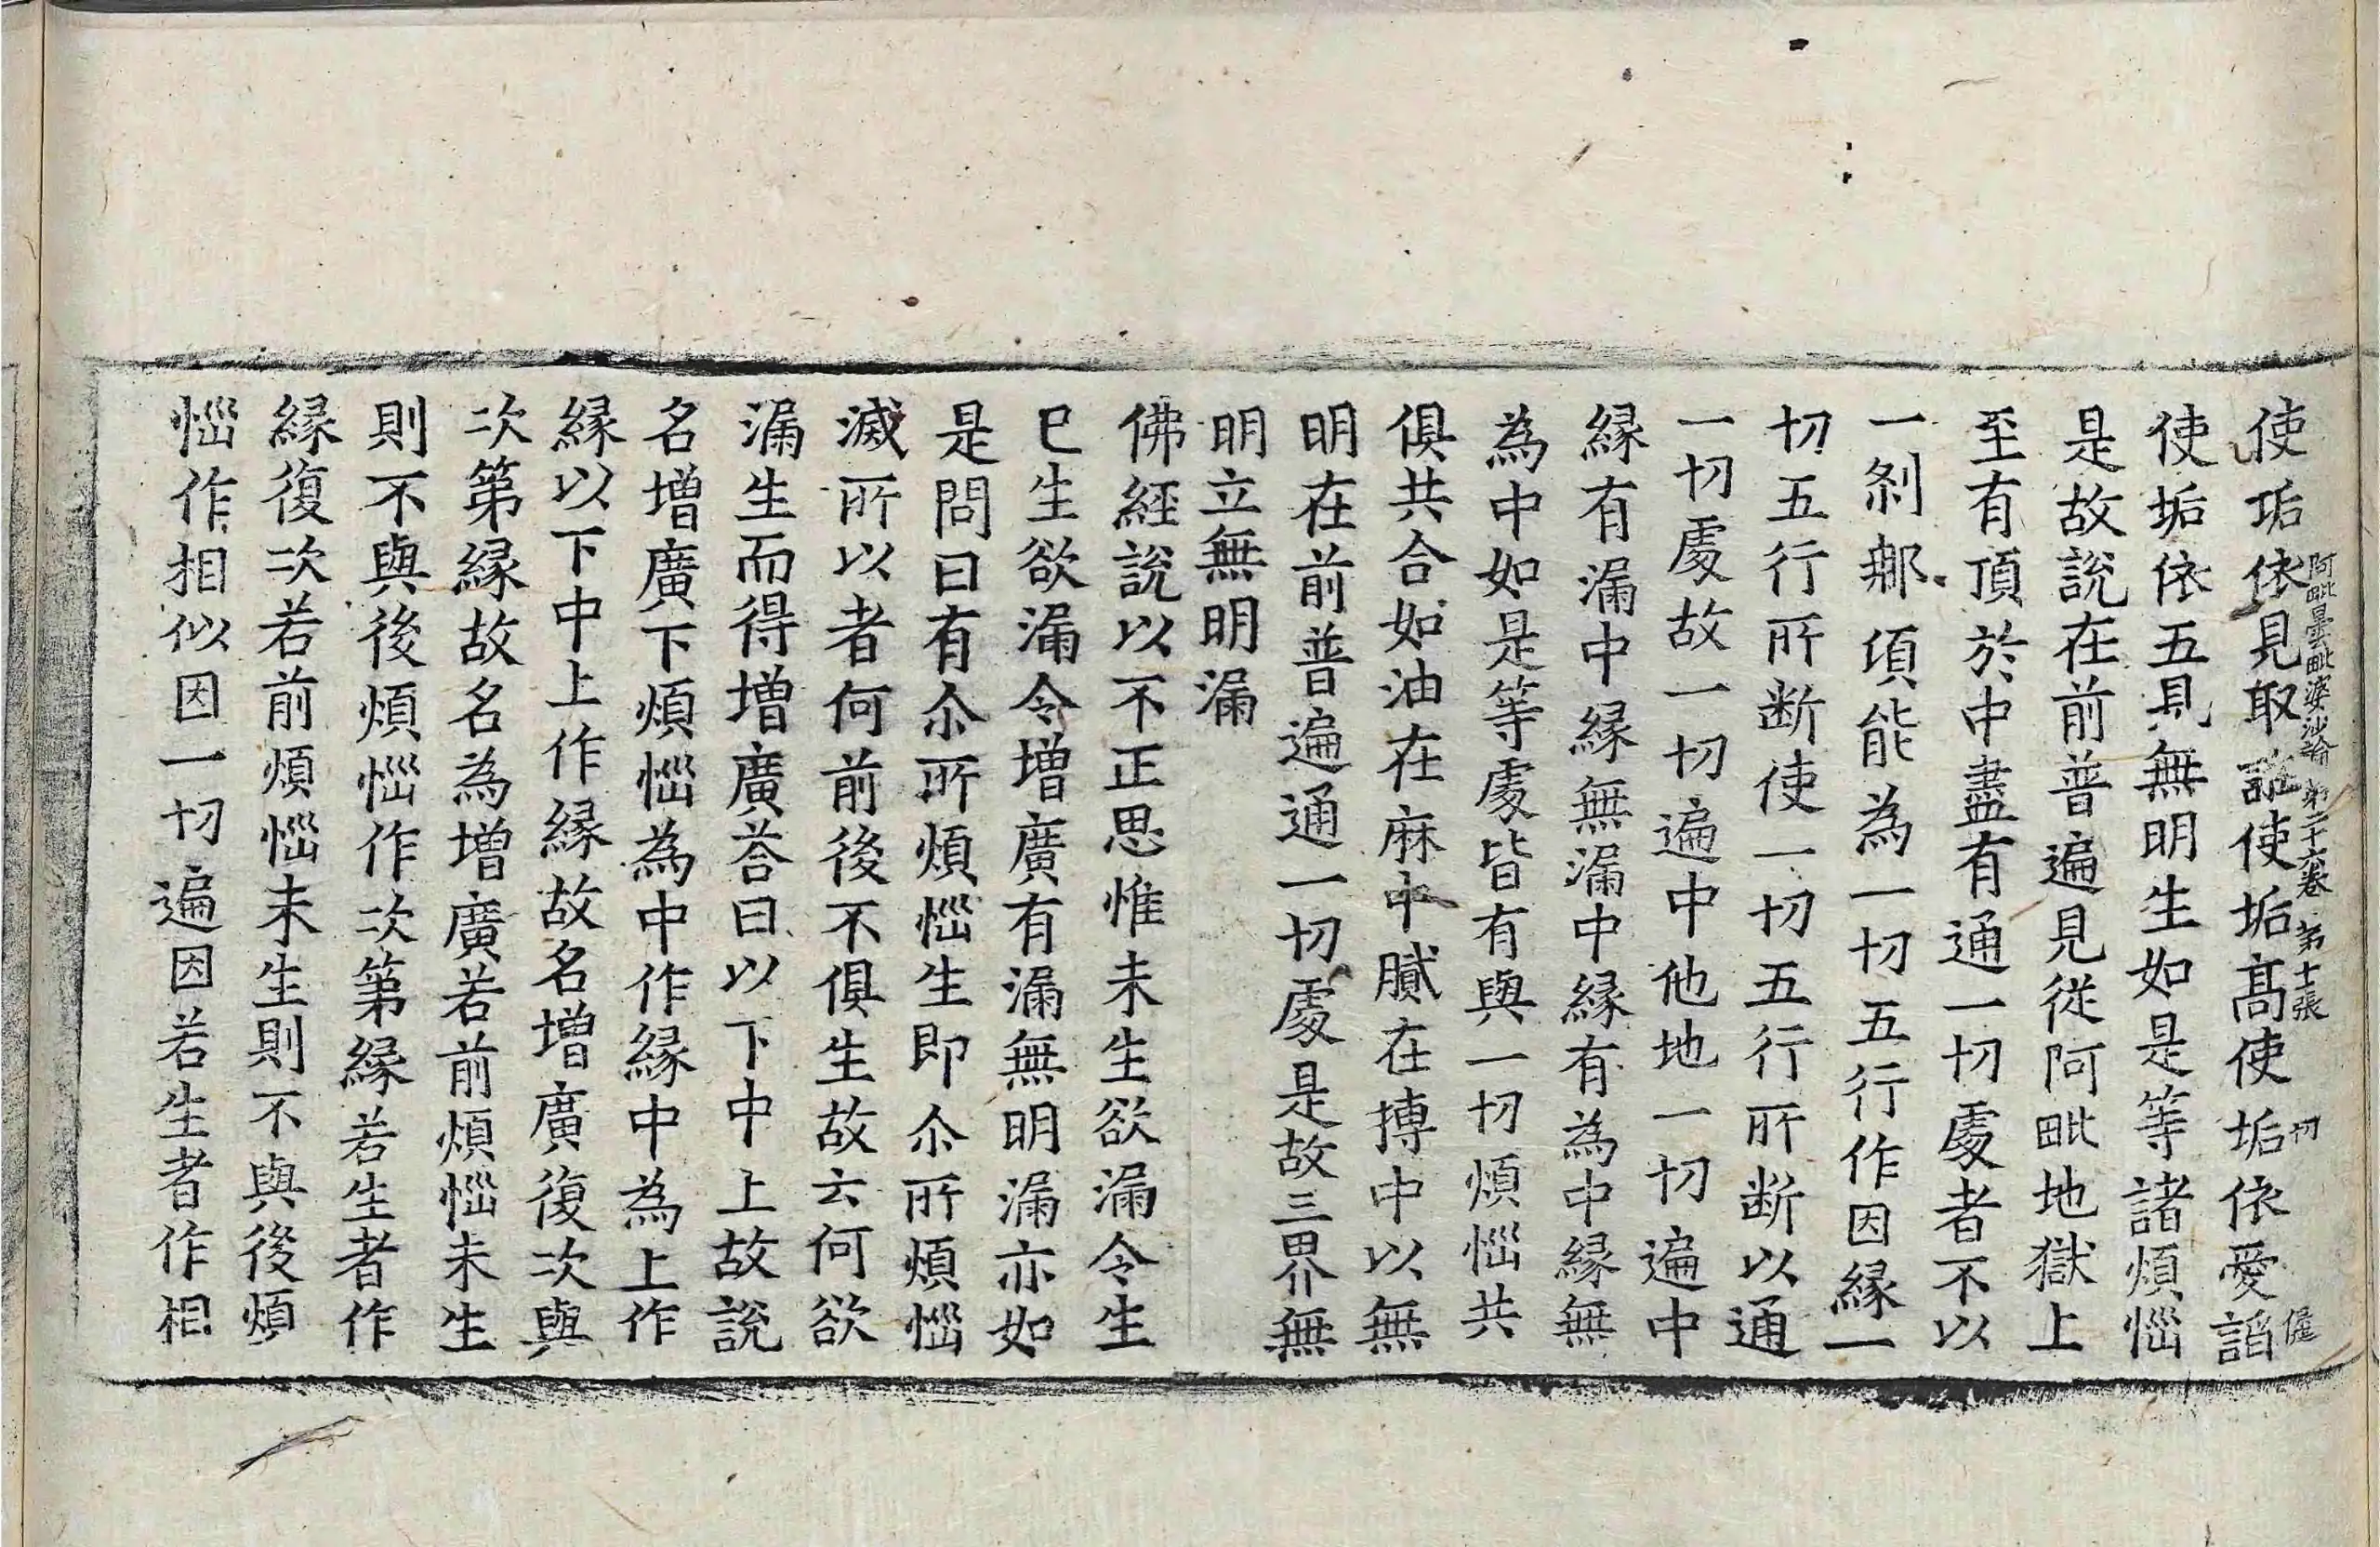 阿毗曇毗婆沙論第二十六卷 第十張 切
使垢依見取誑使垢高使垢依愛諂
使垢依五見無明生如是等諸煩惱
是故說在前普遍見從阿毗地獄上
至有頂於中盡有通一切處者不以
一剎那項能為一切五行作因緣一
切五行所斷使一切五行所斷以通
一切處故一切遍中他地一切遍中
緣有漏中緣無漏中緣有為中緣無
為中如是等處皆有與一切煩惱共
俱共合如油在麻中膩在摶中以無
明在前普遍通一切處是故三界無
明立無明漏
佛經說以不正思惟未生欲漏令生
已生欲漏令增廣有漏無明漏亦如
是問曰有尒所煩惱生即尒所煩惱
滅所以者何前後不俱生故云何欲
漏生而得增廣荅曰以下中上故說
名增廣下煩惱為中作緣中為上作
緣以下中上作緣故名增廣復次與
次第緣故名為增廣若前煩惱未生
則不與後煩惱作次第緣若生者作
緣復次若前煩惱未生則不與後煩
惱作相似因一切遍因若生者作相